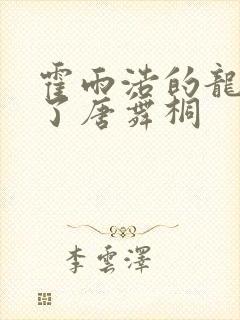 霍雨浩的龍
了唐舞桐
李雲澤